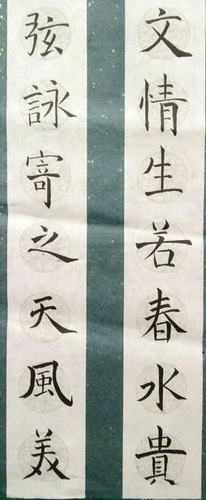 文情生若春水貴
弦詠寄之天風美